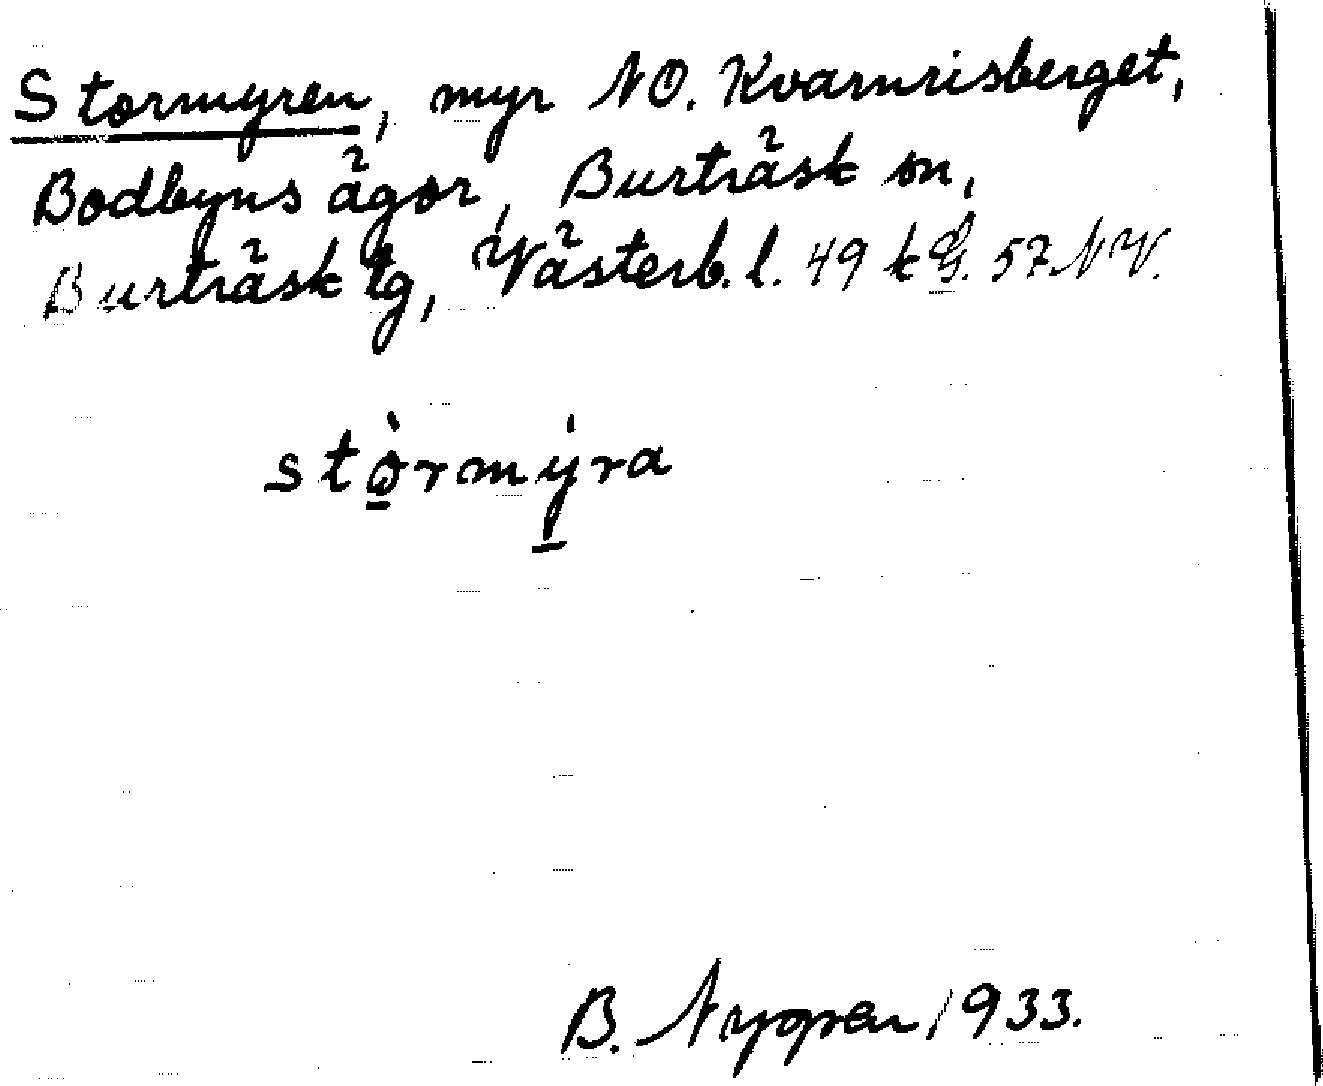 Stormyren, myr NO. Kvarnrisberget,
Bodbyns ägor, Burträsk sn,
Burträsk tg, Västerb. l. 49 k G. 57 NV.
stòrmýra
B. Nygren 1933.